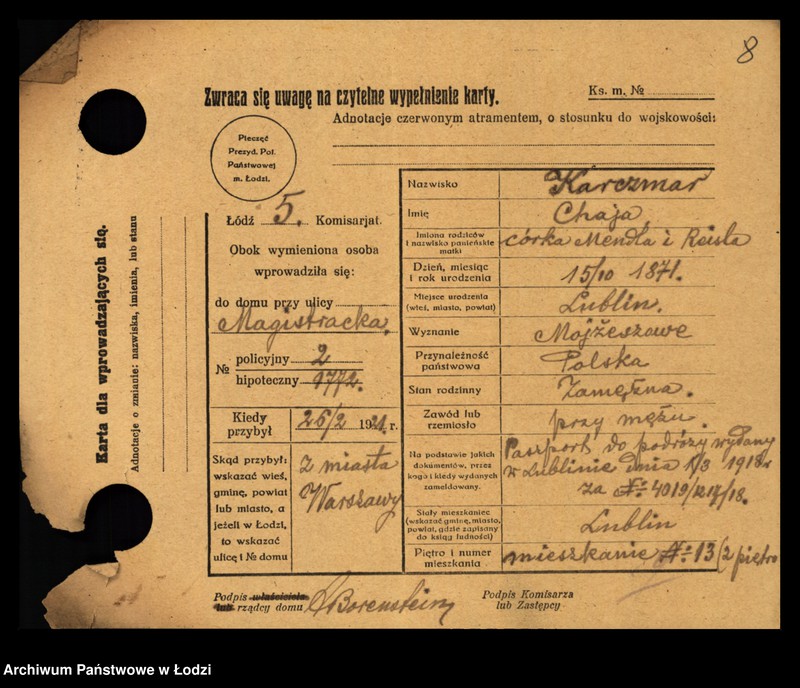 8
Zwraca się uwagę na czytelne wypełnienie karty.
Ks. m. №
Adnotacje czerwonym atramentem, o stosunku do wojskowości:
Karta dla wprowadzających się.
Adnotacje o zmianie: nazwiska, imienia, lub stanu
Pieczęć
Prezyd. Pol.
Państwowej
m. Łodzi.
Łódź 5. Komisarjat.
Obok wymieniona osoba
wprowadziła się:
do domu przy ulicy
Magistracka,
№ policyjny 2
hipoteczny 1772.
Kiedy
przybył
26/2 1921. r.
Skąd przybył:
wskazać wieś,
gminę, powiat
lub miasto, a
jeżeli w Łodzi,
to wskazać
ulicę i № domu
z miasta
Warszawy
Nazwisko Karczmar
Imię Chaja
Imiona rodziców
i nazwisko panieńskie
matki
córka Mendla i Reisla
Dzień, miesiąc
i rok urodzenia
15/10 1871.
Miejsce urodzenia
(wieś, miasto, powiat)
Lublin.
Wyznanie Mojżeszowe
Przynależność
państwowa
Polska
Stan rodzinny Zamężna.
Zawód lub
rzemiosło
przy mężu.
Na podstawie jakich
dokumentów, przez
kogo i kiedy wydanych
zameldowany.
Paszport do podróży wydany
w Lublinie dnia 1/3 1918 r
za № 4019/1217/18.
Stały mieszkaniec
(wskazać gminę, miasto,
powiat, gdzie zapisany
do ksiąg ludności)
Lublin
Piętro i numer
mieszkania
mieszkanie № 13 (2 piętro
Podpis właściciela
lub rządcy domu
Borenstein
Podpis Komisarza
lub Zastępcy
Archiwum Państwowe w Łodzi